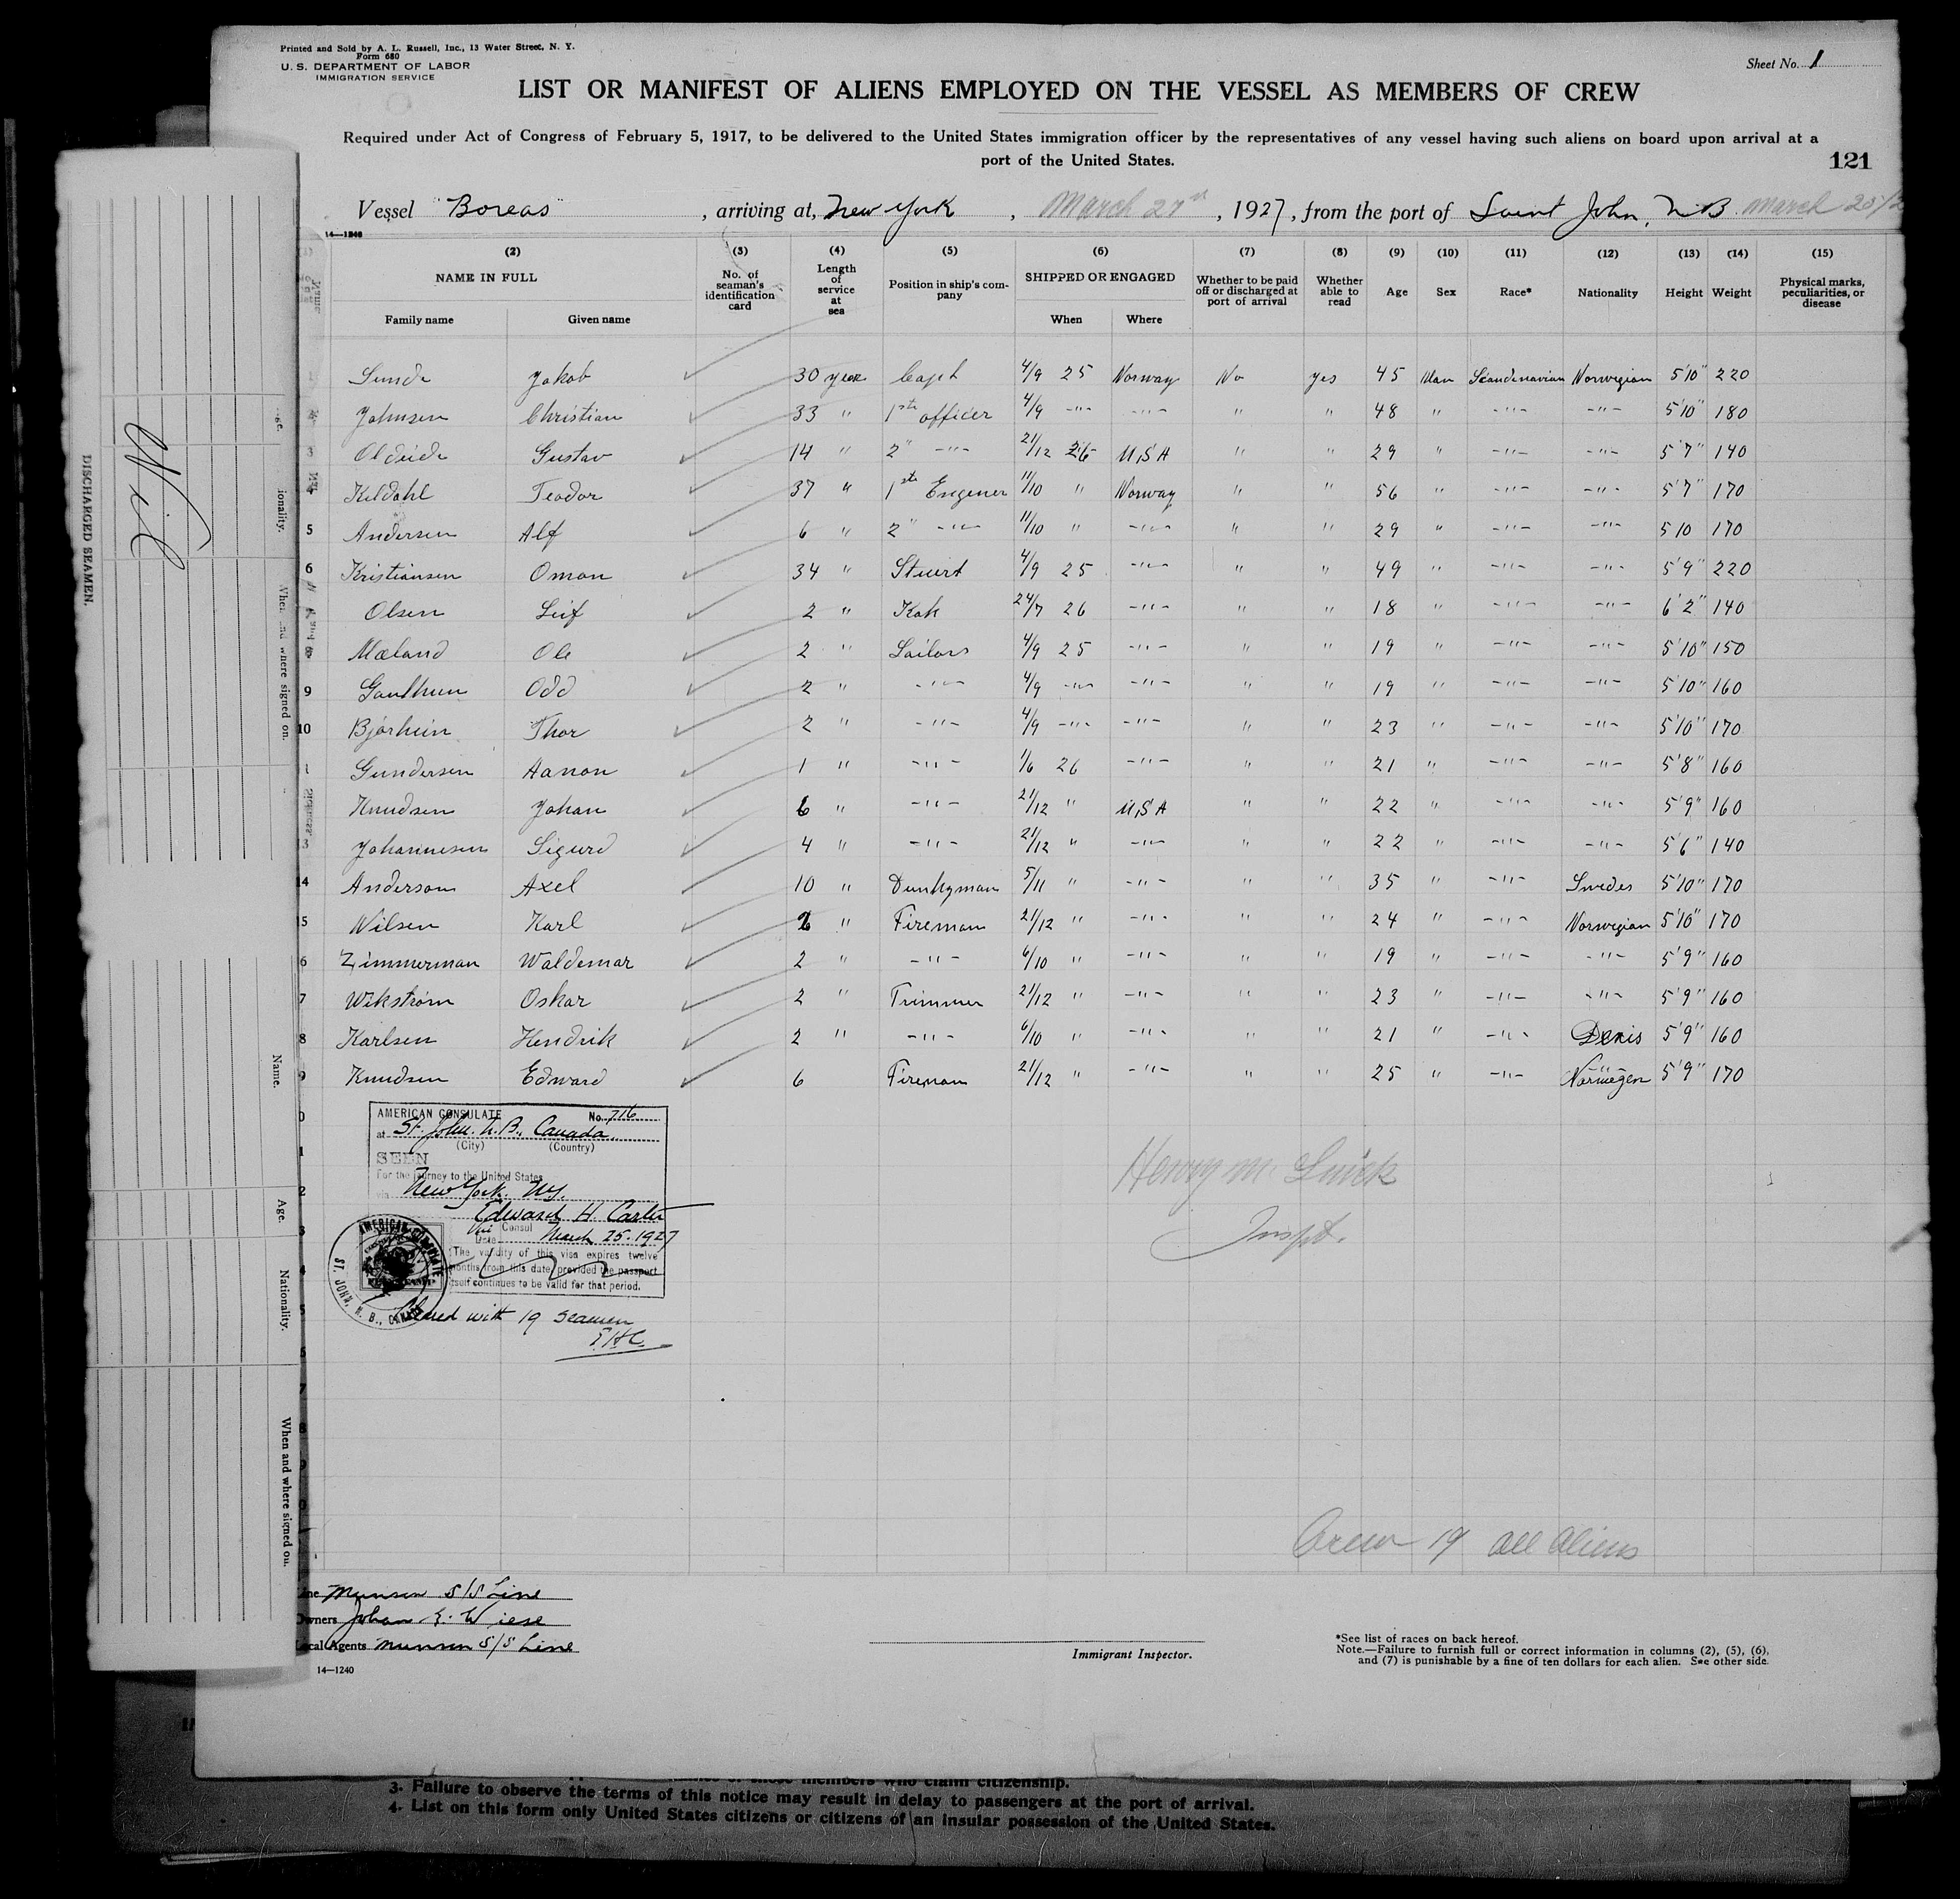 Printed and Sold by A. L. Russell, Inc., 13 Water Street, N. Y.
Form 680
U. S. DEPARTMENT OF LABOR
IMMIGRATION SERVICE
Sheet No. 1
LIST OR MANIFEST OF ALIENS EMPLOYED ON THE VESSEL AS MEMBERS OF CREW
Required under Act of Congress of February 5, 1917, to be delivered to the United States immigration officer by the representatives of any vessel having such aliens on board upon arrival at a
port of the United States.
121
Vessel "Boreas", arriving at, New York, March 27, 1927, from the port of Saint John, N B. March 25/2
14—1240
(2) (3) (4) (5) (6) (7) (8) (9) (10) (11) (12) (13) (14) (15)
NAME IN FULL
Family name Given name
No. of seaman's identification card
Length of service at sea
Position in ship's company
SHIPPED OR ENGAGED
When Where
Whether to be paid off or discharged at port of arrival
Whether able to read
Age Sex Race* Nationality Height Weight
Physical marks, peculiarities, or disease
Sunde Jakob 30 year Capt 4/9 25 Norway No yes 45 Man Scandenavian Norwegian 5'10" 220
Johnsen Christian 33 " 1ste officer 4/9 -"- -"- " " 48 " -"- -"- 5'10" 180
3 Gustav 14 " 2" -"- 21/12 26 USA " " 29 " -"- -"- 5'7" 140
4 Kildahl Teodor 37 " 1ste Engener 11/10 " Norway " " 56 " -"- -"- 5'7" 170
5 Andersen Alf 6 " 2" -"- 11/10 " -"- " " 29 " -"- -"- 5 10 170
6 Kristiansen Oman 34 " Stuert 4/9 25 -"- " " 49 " -"- -"- 5'9" 220
Olsen Leif 2 " Kok 24/7 26 -"- " " 18 " -"- -"- 6'2" 140
Mæland Ole 2 " Sailors 4/9 25 -"- " " 19 " -"- -"- 5'10" 150
9 Odd 2 " -"- 4/9 -"- -"- " " 19 " -"- -"- 5'10" 160
10 Bjørheim Thor 2 " -"- 4/9 -"- -"- " " 23 " -"- -"- 5'10" 170
1 Gundersen Aanon 1 " -"- 1/6 26 -"- " " 21 " -"- -"- 5'8" 160
Knudsen Johan 6 " -"- 21/12 " USA " " 22 " -"- -"- 5'9" 160
3 Johannesen Sigurd 4 " -"- 21/12 " -"- " " 22 " -"- -"- 5'6" 140
14 Anderson Axel 10 " Dunkyman 5/11 " -"- " " 35 " -"- Swedes 5'10" 170
15 Wilsen Karl 2 " Fireman 21/12 " -"- " " 24 " -"- Norwegian 5'10" 170
6 Zimmerman Waldemar 2 " -"- 6/10 " -"- " " 19 " -"- -"- 5'9" 160
7 Wikstrøm Oskar 2 " Trimmer 21/12 " -"- " " 23 " -"- -"- 5'9" 160
8 Karlsen Hendrik 2 " -"- 6/10 " -"- " " 21 " -"- Denis 5'9" 160
9 Knudsen Edward 6 Fireman 21/12 " -"- " " 25 " -"- Norwegen 5'9" 170
AMERICAN CONSULATE No. 716
at St. John. N.B., Canada.
(City) (Country)
SEEN
For the journey to the United States
via New York. N.Y.
Edward H. Carter
Vice Consul
Date March 25. 1927
The validity of this visa expires twelve
months from this date, provided the passport
itself continues to be valid for that period.
AMERICAN CONSULATE
ST. JOHN, N. B., CANADA
Cleared with 19 Seamen
EHC.
Henry M.
Inspt.
Crew 19 all aliens
Line Munson S/S Line
Owners Johan E. Wiese
Local Agents Munson S/S Line
14—1240
Immigrant Inspector.
*See list of races on back hereof.
Note.—Failure to furnish full or correct information in columns (2), (5), (6),
and (7) is punishable by a fine of ten dollars for each alien. See other side.
DISCHARGED SEAMEN.
Nil
When and where signed on.
Name.
Age.
Nationality.
When and where signed on.
members who claim citizenship.
3. Failure to observe the terms of this notice may result in delay to passengers at the port of arrival.
4. List on this form only United States citizens or citizens of an insular possession of the United States.